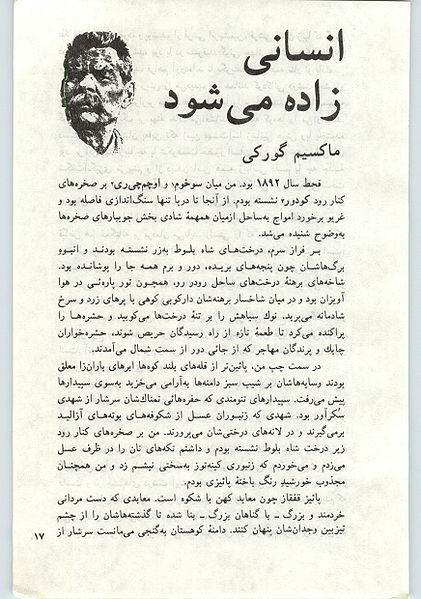 انسانی
زاده می‌شود
ماکسیم گورکی
قحط سال ۱۸۹۲ بود. من میان سوخوم۱ و اوچم‌چی‌ری۲ بر صخره‌های
کنار رود کودور۳ نشسته بودم. از آنجا تا دریا تنها سنگ‌اندازی فاصله بود و
غریو برخورد امواج به‌ساحل ازمیان همهمهٔ شادی بخش جویبارهای صخره‌ها
به‌وضوح شنیده می‌شد.
بـر فراز سرم، درخت‌های شاه بلوط به‌زر نشسته بودنـد و انبوهِ
برگ‌هاشان چون پنجه‌های بریـده، دور و برم همه جـا را پوشانده بود.
شاخه‌های برهنهٔ درخت‌های ساحل رودر رو، همچون تور پاره‌ئی در هوا
آویزان بود و در میان شاخسار برهنه‌شان دارکوبی کوهی با پرهای زرد و سرخ
شادمانه می‌پرید. نوك سیاهش را بر تنهٔ درخت‌ها می‌کوبید و حشره‌ها را
پراکنده می‌کرد تا طعمهٔ تازه از راه رسیدگان حریص شوند، حشره‌خواران
چابك و پرندگان مهاجر که از جائی دور از سمت شمال می‌آمدند.
در سمت چپ من، پائین‌تر از قله‌های بلند کوه‌ها ابرهای باران‌زا معلق
بودند وسایه‌هاشان بر شیب سبز دامنه‌ها به‌آرامی می‌خزید به‌سوی سپیدارها
پیش می‌رفت. سپیدارهای تنومندی که حفره‌هائی تمناك‌شان سرشار از شهدی
سُکرآور بود. شهدی که زنبـوران عسـل از شکوفه‌هـای بوته‌هـای آزالیـد
برمی‌گیرند و در لانه‌های درختی‌شان می‌پرورند. من بر صخره‌های کنار رود
زیر درخت شاه بلوط نشسته بودم و داشتم تکه‌های نان را در ظرف عسل
می‌زدم و می‌خوردم که زنبوری کینه‌توز به‌سختی نیشم زد و من همچنـان
مجذوب خورشیدِ رنگ باختهٔ پائیزی بودم.
پائیز قفقاز چون معابد کهن با شکوه است. معابدی که دست مردانی
خردمند و بزرگ ـ با گناهان بزرگ ـ بنا شده تا گذشته‌هاشان را از چشم
تیزبین وجدان‌شان پنهان کنند. دامنهٔ کوهستان به‌گنجی می‌مانست سرشار از
۱۷